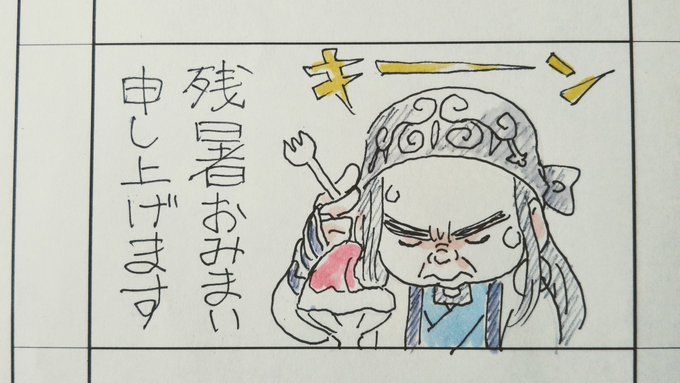 キーン
残暑おみまい
申し上げます